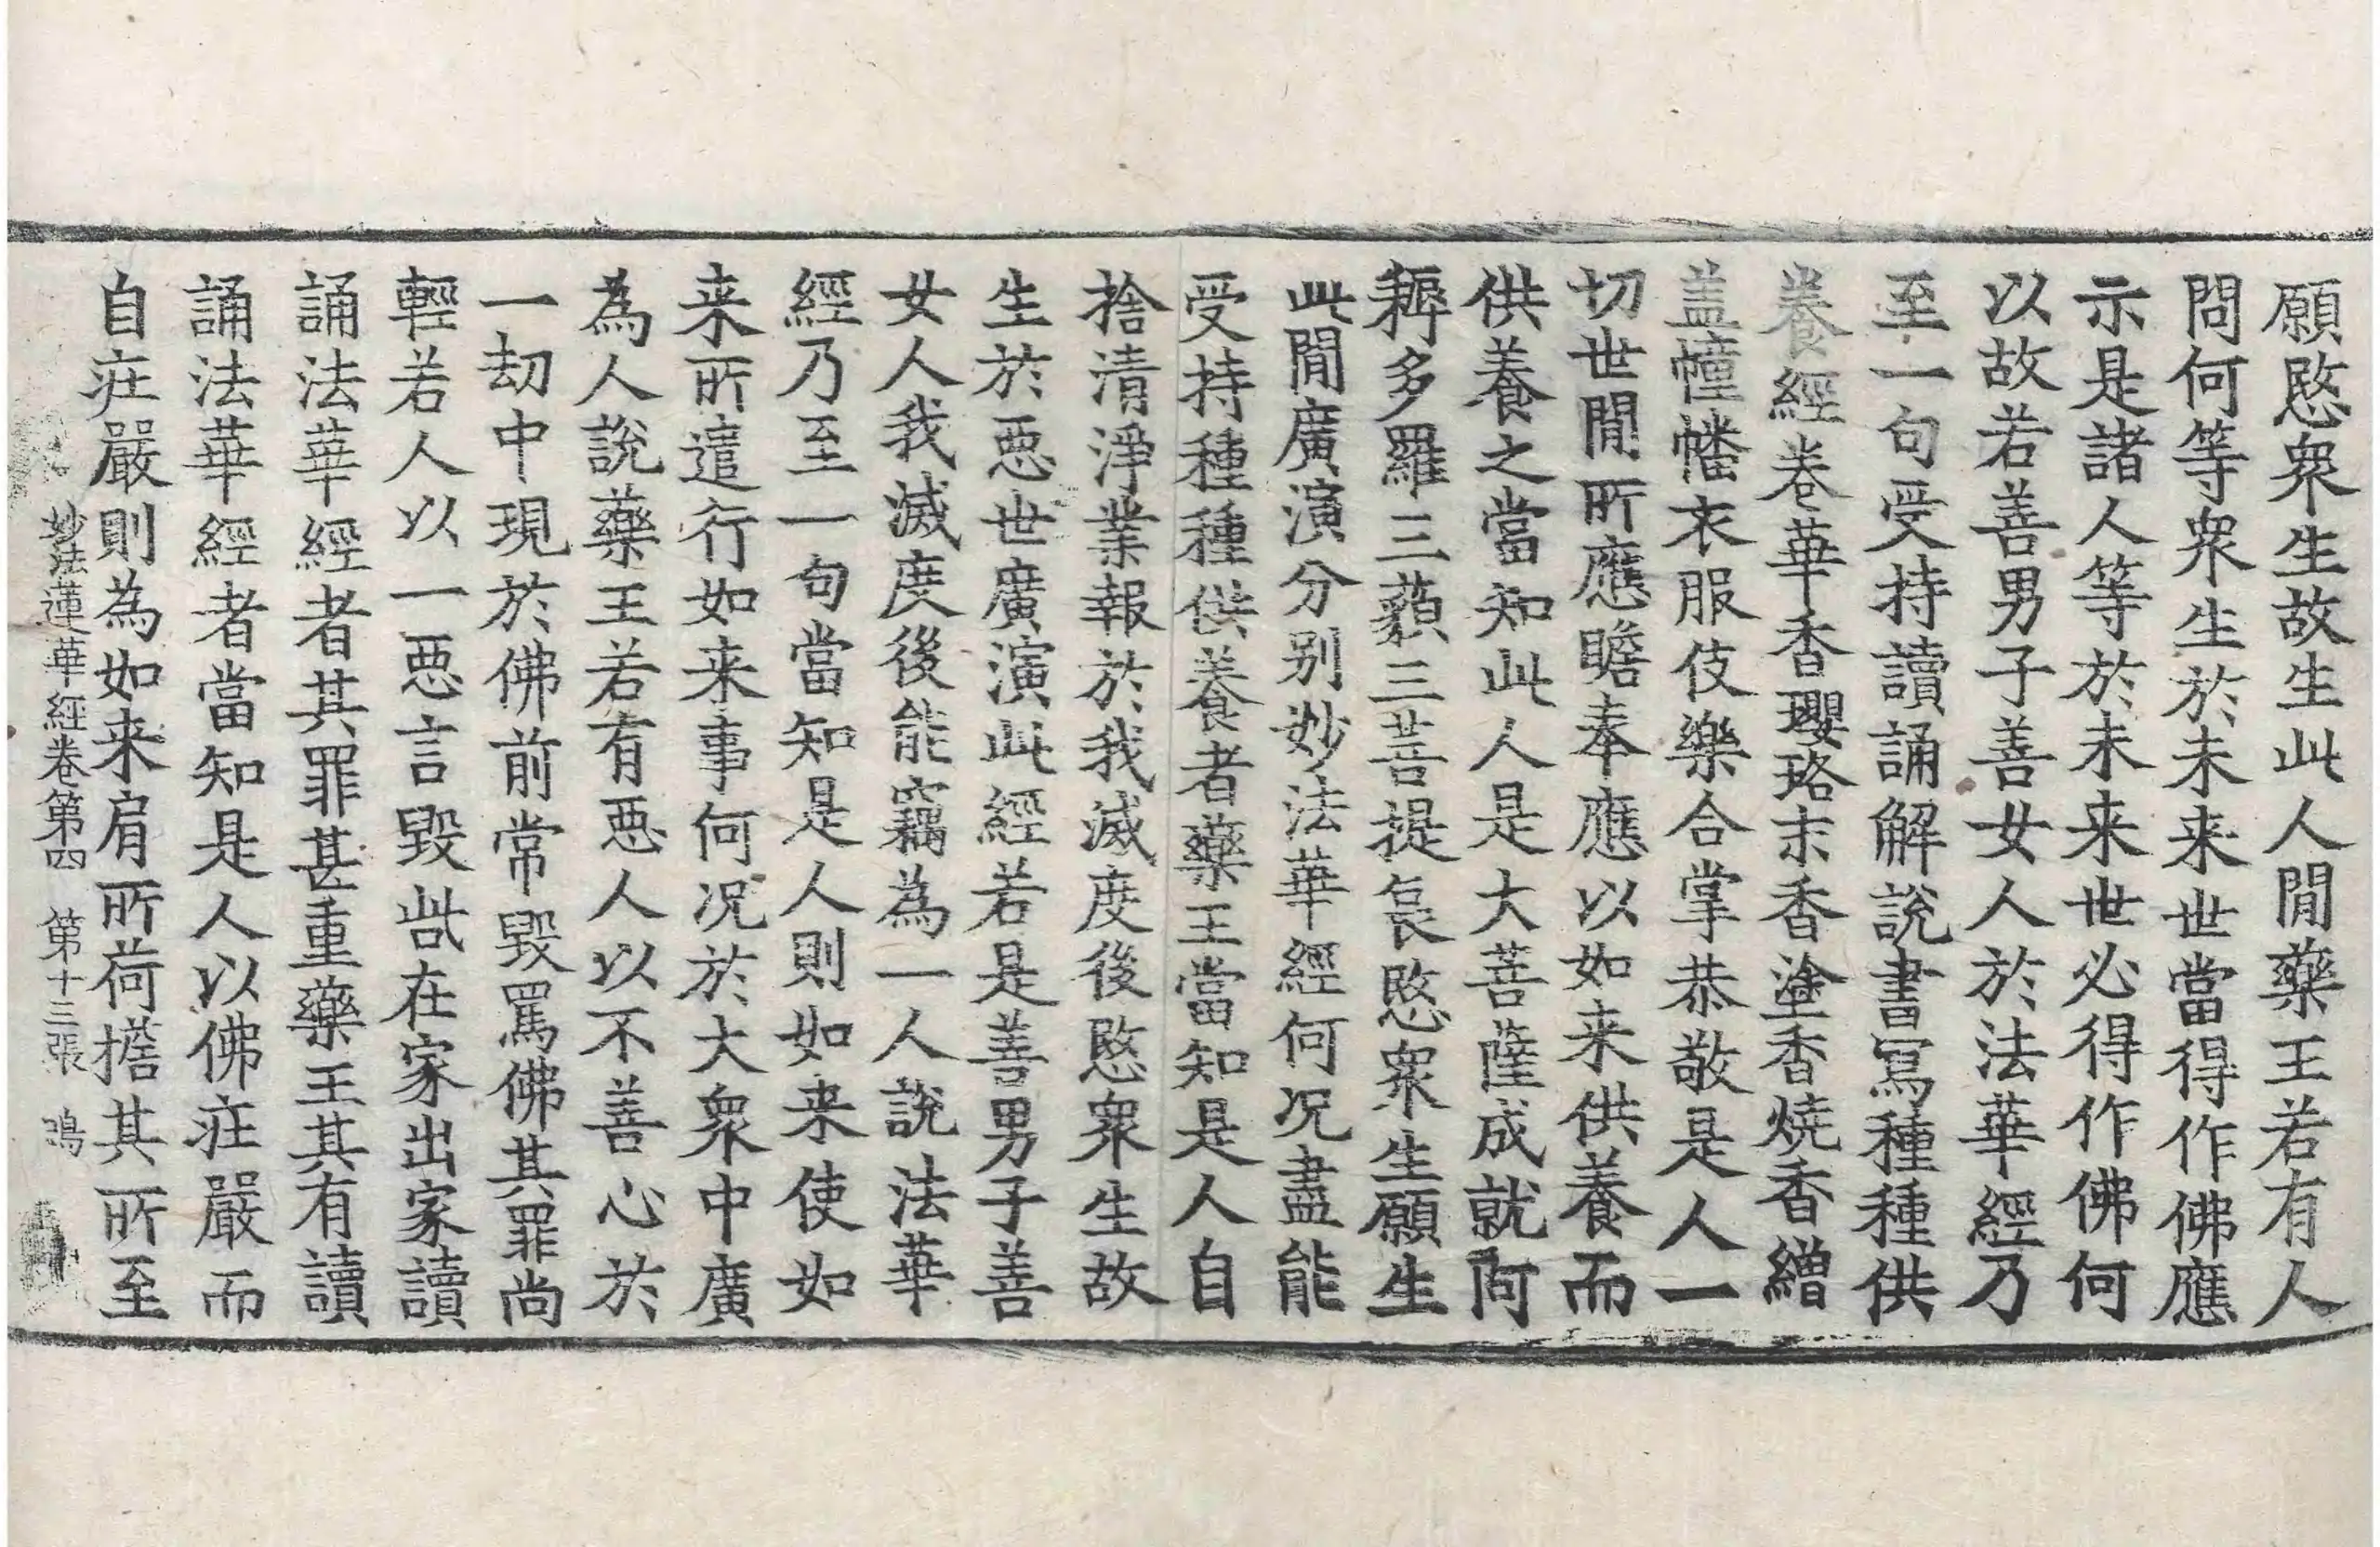 願愍衆生故生此人閒藥王若有人
問何等衆生於未来世當得作佛應
示是諸人等於未来世必得作佛何
以故若善男子善女人於法華經乃
至一句受持讀誦解說書寫種種供
養經卷華香瓔珞末香塗香燒香繒
盖幢幡衣服伎樂合掌恭敬是人一
切世閒所應瞻奉應以如来供養而
供養之當知此人是大菩薩成就阿
耨多羅三藐三菩提哀愍衆生願生
此閒廣演分别妙法華經何况盡能
受持種種供養者藥王當知是人自
捨清淨業報於我滅度後愍衆生故
生於惡世廣演此經若是善男子善
女人我滅度後能竊為一人說法華
經乃至一句當知是人則如来使如
来所遣行如来事何况於大衆中廣
為人說藥王若有惡人以不善心於
一劫中現於佛前常毀罵佛其罪尚
輕若人以一惡言毀呰在家出家讀
誦法華經者其罪甚重藥王其有讀
誦法華經者當知是人以佛莊嚴而
自莊嚴則為如来肩所荷擔其所至
妙法蓮華經卷第四 第十三張 鴻